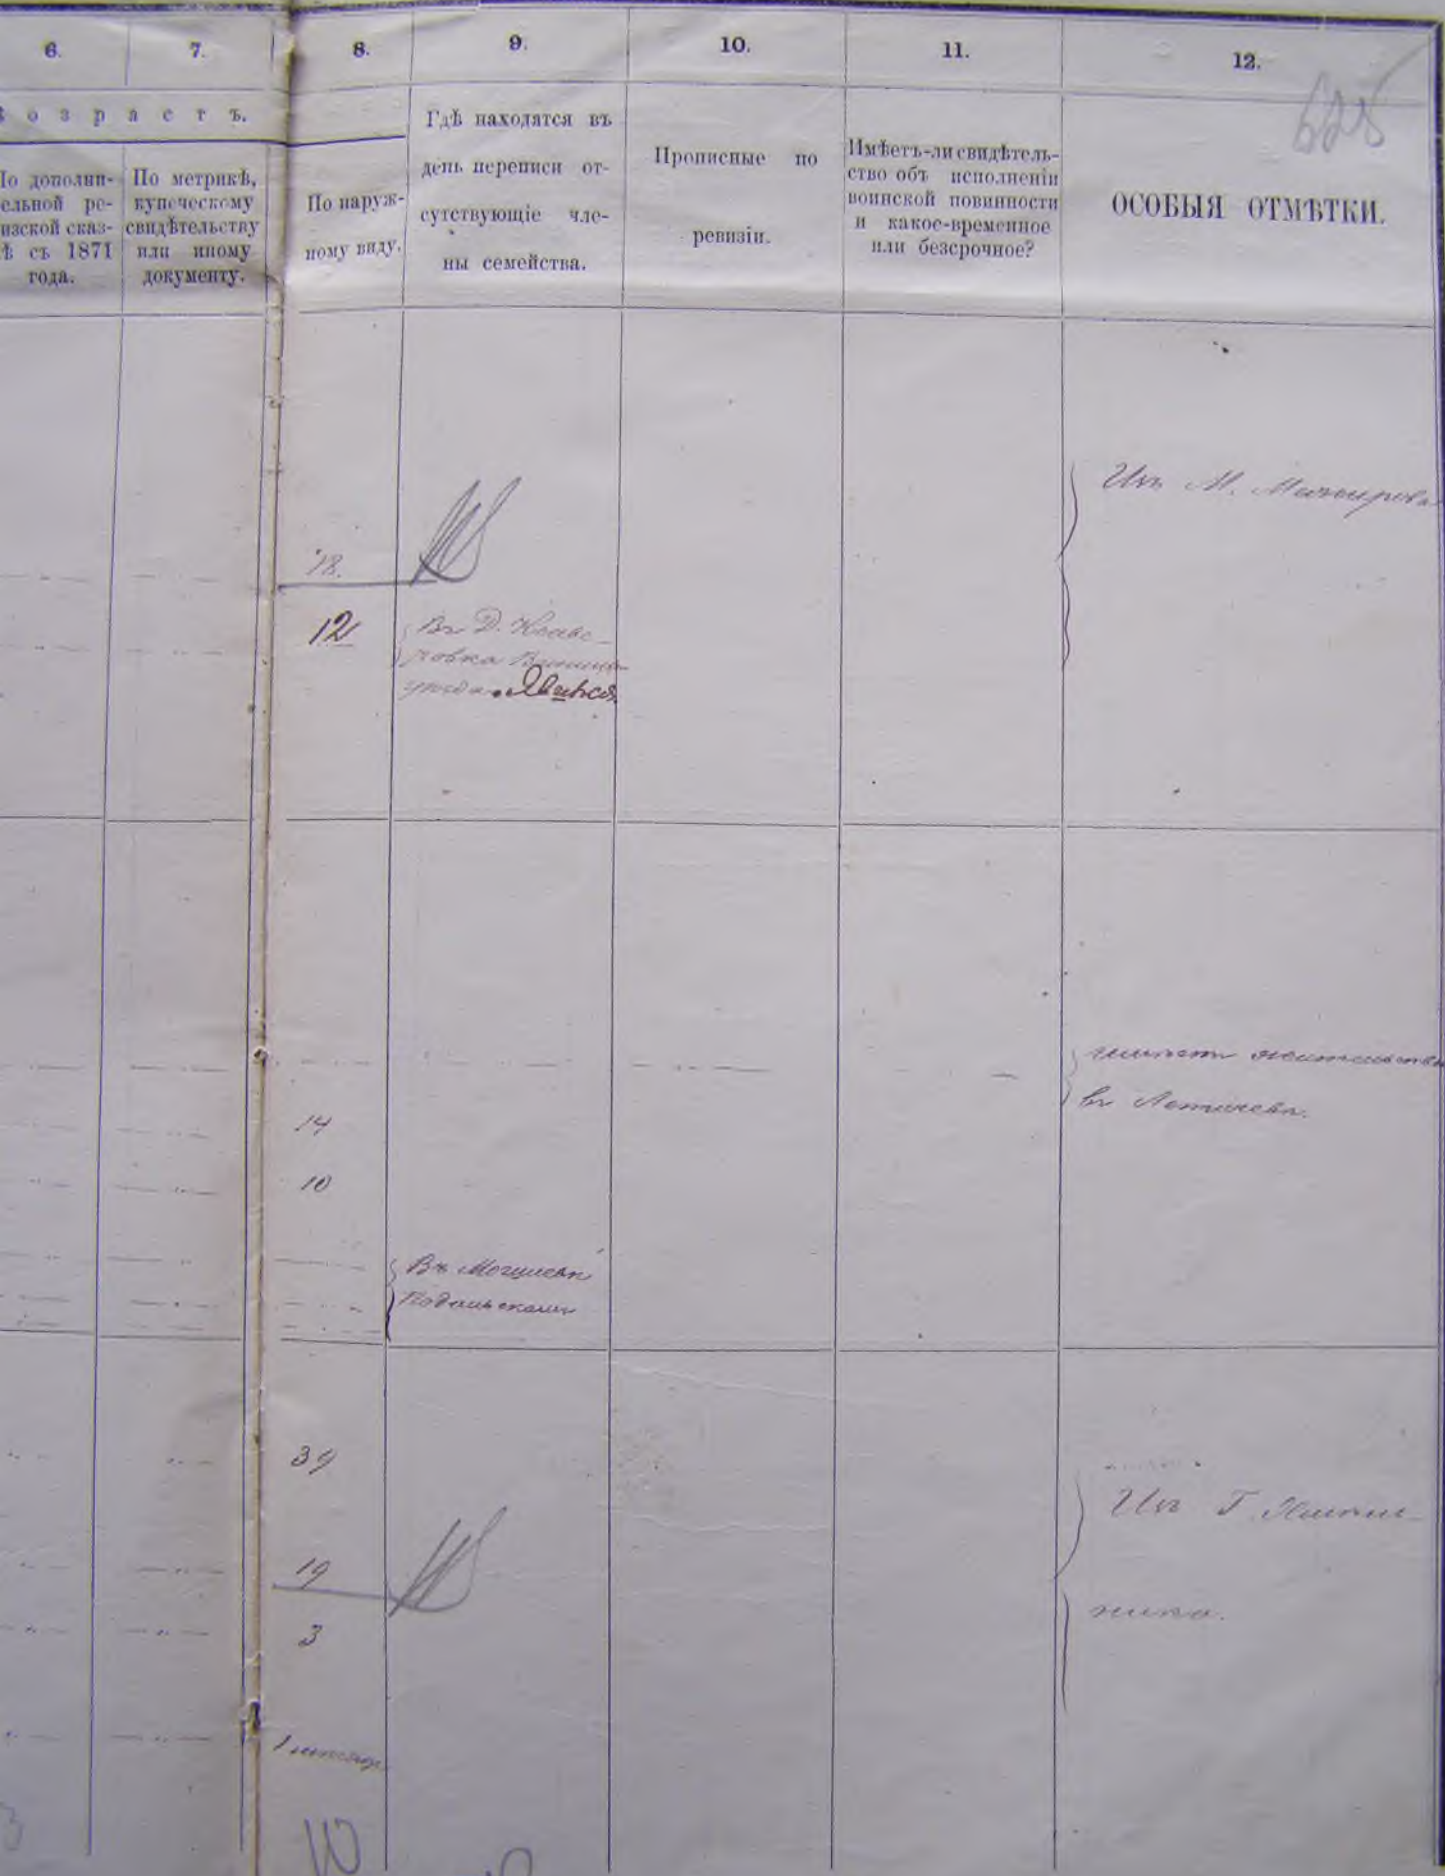 6.
7.
8.
9.
10.
11.
12.
628
о з р а с т ъ.
По дополни-
ельной ре-
изской сказ-
ѣ съ 1871
года.
По метрикѣ,
купеческому
свидѣтельству
или иному
документу.
По наруж-
ному виду.
Гдѣ находятся въ
день переписи от-
сутствующіе чле-
ны семейства.
Прописные по
ревизіи.
Имѣетъ-ли свидѣтель-
ство объ исполненіи
воинской повинности
и какое-временное
или безсрочное?
ОСОБЫЯ ОТМѢТКИ.
Изъ М.
18.
12
Въ Д.
уѣзда
имѣетъ жительство
въ
14
10
Въ Могилевѣ
Подольскомъ
39
Изъ Г.
19
3
1
10